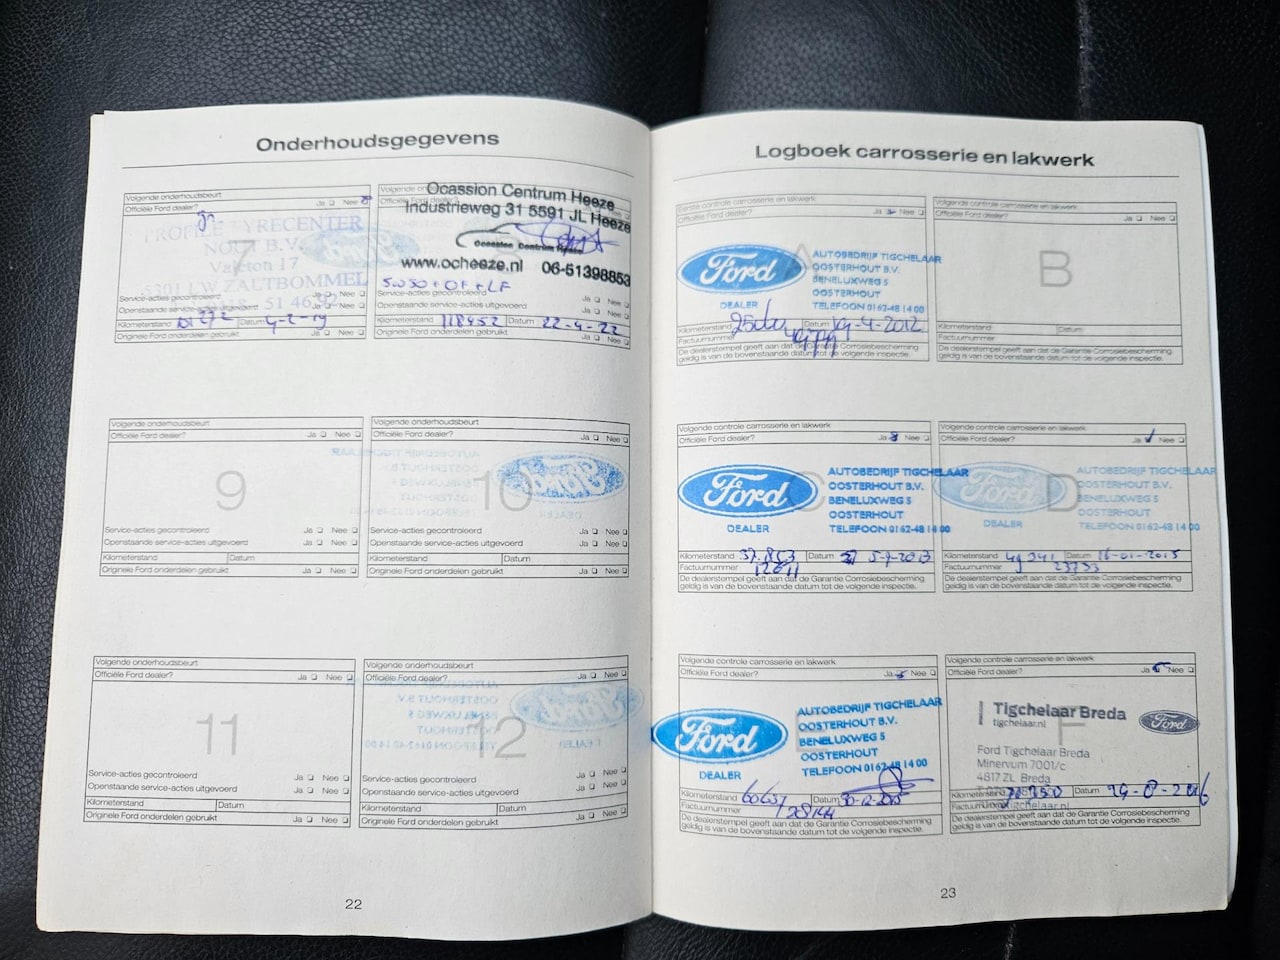 Onderhoudsgegevens
Volgende onderhoudsbeurt
Officiële Ford dealer? Ja Nee
7
PROFILE TYRECENTER
NOUT B.V.
Valeton 17
5301 LW ZALTBOMMEL
Service-acties gecontroleerd Ja Nee
Openstaande service-acties uitgevoerd Ja Nee
Kilometerstand Datum 4-2-19
Originele Ford onderdelen gebruikt Ja Nee
Volgende
Ocassion Centrum Heeze
Industrieweg 31 5591 JL Heeze
Ocassion Centrum Heeze
www.ocheeze.nl 06-51398853
5W30 + OF + LF
Service-acties gecontroleerd
Openstaande service-acties uitgevoerd Ja Nee
Kilometerstand 118452 Datum 22-4-22
Originele Ford onderdelen gebruikt Ja Nee
Volgende onderhoudsbeurt
Officiële Ford dealer? Ja Nee
9
Service-acties gecontroleerd Ja Nee
Openstaande service-acties uitgevoerd Ja Nee
Kilometerstand Datum
Originele Ford onderdelen gebruikt Ja Nee
Volgende onderhoudsbeurt
Officiële Ford dealer? Ja Nee
10
Service-acties gecontroleerd Ja Nee
Openstaande service-acties uitgevoerd Ja Nee
Kilometerstand Datum
Originele Ford onderdelen gebruikt Ja Nee
Volgende onderhoudsbeurt
Officiële Ford dealer? Ja Nee
11
Service-acties gecontroleerd Ja Nee
Openstaande service-acties uitgevoerd Ja Nee
Kilometerstand Datum
Originele Ford onderdelen gebruikt Ja Nee
Volgende onderhoudsbeurt
Officiële Ford dealer? Ja Nee
12
Service-acties gecontroleerd Ja Nee
Openstaande service-acties uitgevoerd Ja Nee
Kilometerstand Datum
Originele Ford onderdelen gebruikt Ja Nee
22
Logboek carrosserie en lakwerk
Eerste controle carrosserie en lakwerk
Officiële Ford dealer? Ja Nee
A
Ford
DEALER
AUTOBEDRIJF TIGCHELAAR
OOSTERHOUT B.V.
BENELUXWEG 5
OOSTERHOUT
TELEFOON 0162-48 14 00
Kilometerstand Datum 19-4-2012
Factuurnummer
De dealerstempel geeft aan dat de Garantie Corrosiebescherming
geldig is van de bovenstaande datum tot de volgende inspectie.
Volgende controle carrosserie en lakwerk
Officiële Ford dealer? Ja Nee
B
Kilometerstand Datum
Factuurnummer
De dealerstempel geeft aan dat de Garantie Corrosiebescherming
geldig is van de bovenstaande datum tot de volgende inspectie.
Volgende controle carrosserie en lakwerk
Officiële Ford dealer? Ja Nee
C
Ford
DEALER
AUTOBEDRIJF TIGCHELAAR
OOSTERHOUT B.V.
BENELUXWEG 5
OOSTERHOUT
TELEFOON 0162-48 14 00
Kilometerstand 37.853 Datum 5-7-2013
Factuurnummer 12611
De dealerstempel geeft aan dat de Garantie Corrosiebescherming
geldig is van de bovenstaande datum tot de volgende inspectie.
Volgende controle carrosserie en lakwerk
Officiële Ford dealer? Ja Nee
D
Ford
DEALER
AUTOBEDRIJF TIGCHELAAR
OOSTERHOUT B.V.
BENELUXWEG 5
OOSTERHOUT
TELEFOON 0162-48 14 00
Kilometerstand 49341 Datum 16-01-2015
Factuurnummer 23733
De dealerstempel geeft aan dat de Garantie Corrosiebescherming
geldig is van de bovenstaande datum tot de volgende inspectie.
Volgende controle carrosserie en lakwerk
Officiële Ford dealer? Ja Nee
E
Ford
DEALER
AUTOBEDRIJF TIGCHELAAR
OOSTERHOUT B.V.
BENELUXWEG 5
OOSTERHOUT
TELEFOON 0162-48 14 00
Kilometerstand 60637 Datum 30-12-2015
Factuurnummer 28144
De dealerstempel geeft aan dat de Garantie Corrosiebescherming
geldig is van de bovenstaande datum tot de volgende inspectie.
Volgende controle carrosserie en lakwerk
Officiële Ford dealer? Ja Nee
F
Tigchelaar Breda
tigchelaar.nl
Ford
Ford Tigchelaar Breda
Minervum 7001/c
4817 ZL Breda
Kilometerstand Datum
Factuurnummer tigchelaar.nl
De dealerstempel geeft aan dat de Garantie Corrosiebescherming
geldig is van de bovenstaande datum tot de volgende inspectie.
23